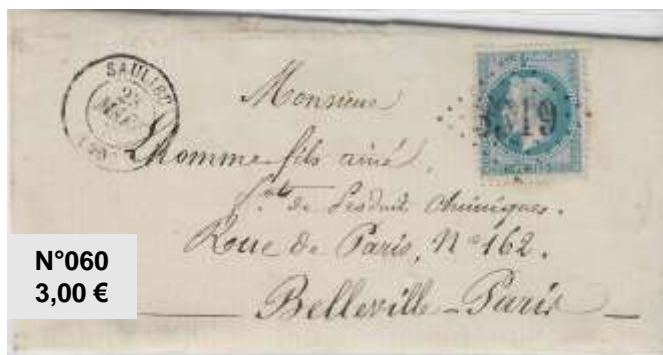 SAULIEU
MARS
3319
Monsieur
Lhomme fils ainé,
de Produit Chimiques.
Rue de Paris, N° 162.
Belleville-Paris
N°060
3,00 €